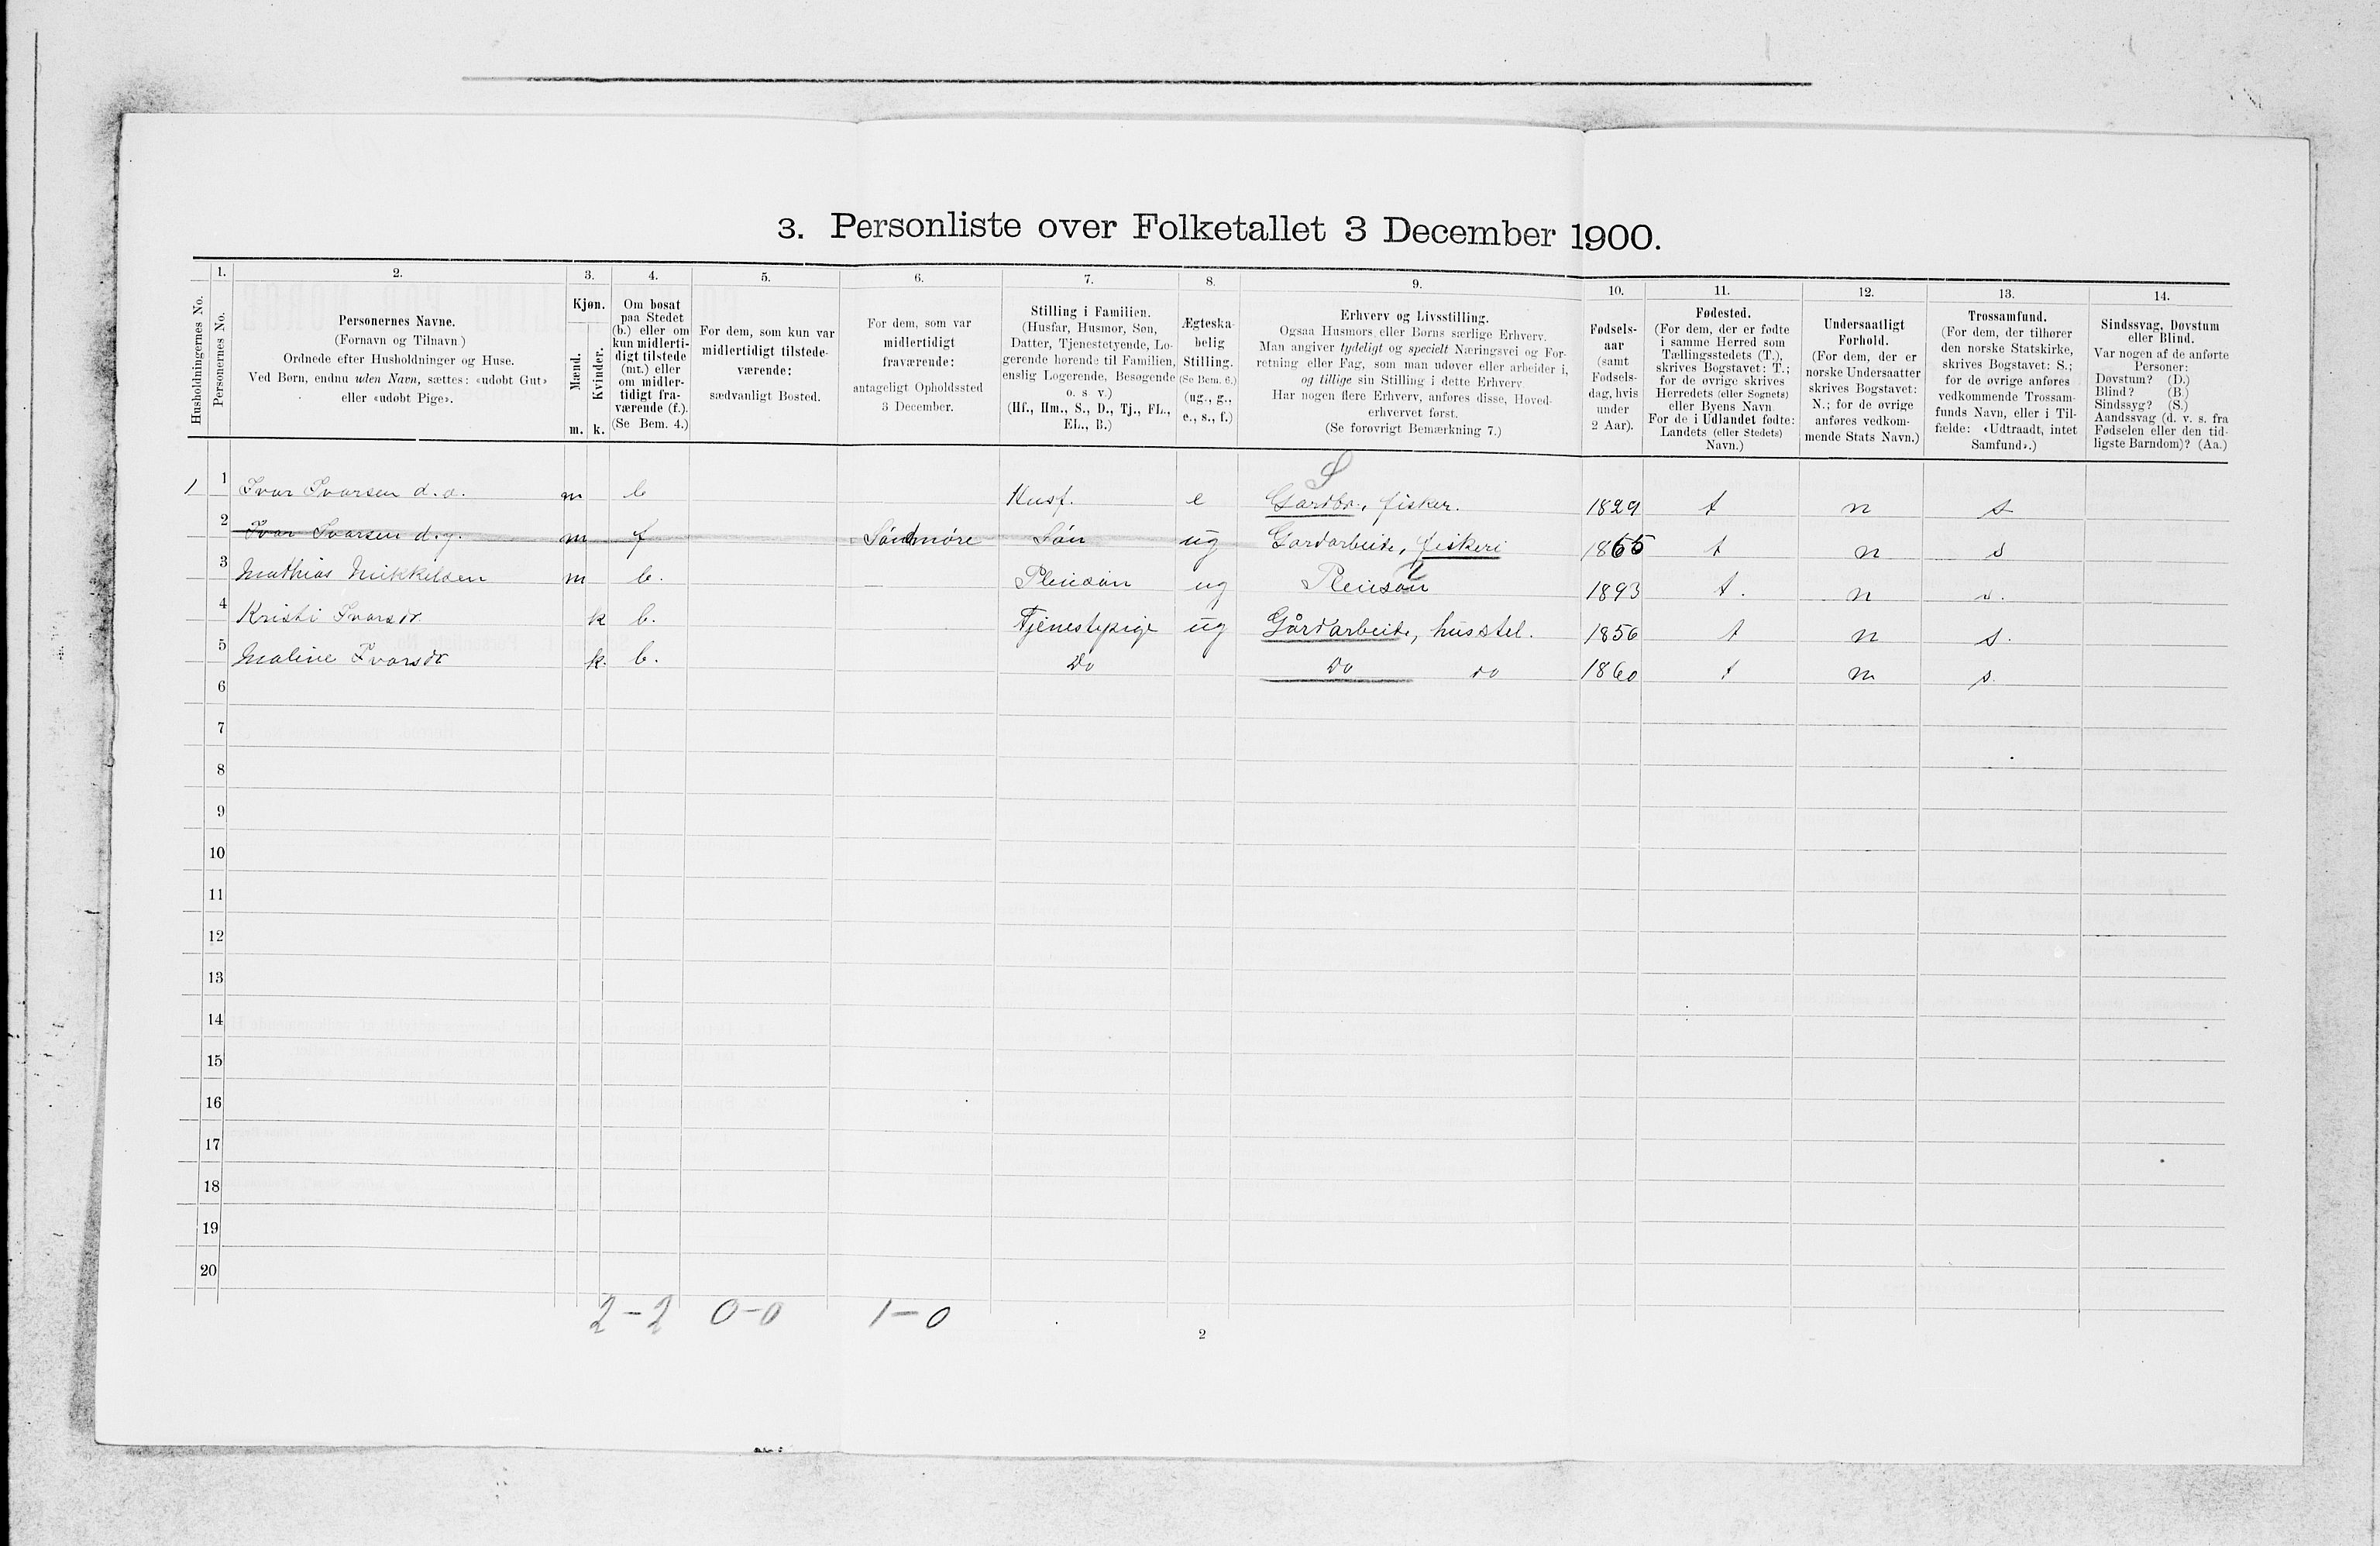 3. Personliste over Folketallet 3 December 1900.
Husholdningernes No.
1.
Personernes No.
2.
Personernes Navne.
(Fornavn og Tilnavn)
Ordnede efter Husholdninger og Huse.
Ved Børn, endnu uden Navn, sættes: «udøbt Gut»
eller «udøbt Pige».
3.
Kjøn.
Mænd.
Kvinder.
m. k.
4.
Om bosat
paa Stedet
(b.) eller om
kun midlerti-
digt tilstede
(mt.) eller
om midler-
tidigt fra-
værende (f.).
(Se Bem. 4.)
5.
For dem, som kun var
midlertidigt tilstede-
værende:
sædvanligt Bosted.
6.
For dem, som var
midlertidigt
fraværende:
antageligt Opholdssted
3 December.
7.
Stilling i Familien.
(Husfar, Husmor, Søn,
Datter, Tjenestetyende, Lo-
gerende hørende til Familien,
enslig Logerende, Besøgende
o. s v.)
(Hf., Hm., S., D., Tj., FL.,
EL., B.)
8.
Ægteska-
belig
Stilling.
(Se Bem. 6.)
(ug., g.,
e., s., f.)
9.
Erhverv og Livsstilling.
Ogsaa Husmors eller Børns særlige Erhverv.
Man angiver tydeligt og specielt Næringsvei og For-
retning eller Fag, som man udøver eller arbeider i,
og tillige sin Stilling i dette Erhverv.
Har nogen flere Erhverv, anføres disse, Hoved-
erhvervet først.
(Se forøvrigt Bemærkning 7.)
10.
Fødsels-
aar
(samt
Fødsels-
dag, hvis
under
2 Aar).
11.
Fødested.
(For dem, der er fødte
i samme Herred som
Tællingsstedets (T.),
skrives Bogstavet: T.;
for de øvrige skrives
Herredets (eller Sognets)
eller Byens Navn
For de i Udlandet fødte:
Landets (eller Stedets)
Navn.)
12.
Undersaatligt
Forhold.
(For dem, der er
norske Undersaatter
skrives Bogstavet:
N.; for de øvrige
anføres vedkom-
mende Stats Navn.)
13.
Trossamfund.
(For dem, der tilhører
den norske Statskirke,
skrives Bogstavet: S.;
for de øvrige anføres
vedkommende Trossam-
funds Navn, eller i Til-
fælde: «Udtraadt, intet
Samfund».)
14.
Sindssvag, Døvstum
eller Blind.
Var nogen af de anførte
Personer:
Døvstum? (D.)
Blind? (B.)
Sindssyg? (S.)
Aandssvag (d. v. s. fra
Fødselen eller den tid-
ligste Barndom)? (Aa.)
S
1 1 Ivar Ivarsen d.æ. m b Husf. e Gardbr., fisker. 1829 t n s
2 Ivar Ivarsen d.y. m f Søndmøre Søn ug Gardarbeide, fiskeri 1865 t n s
3 Mathias Mikkelsen m b. Pleiesøn ug Pleiesøn 1893 t. n s.
4 Kristi Ivarsdr k b. Tjenestepige ug Gårdarbeide, husstel. 1856 t n s.
5 Maline Ivarsdr k. b. Do Do do 1860 t n s.
6
7
8
9
10
11
12
13
14
15
16
17
18
19
20
2-2 0-0 1-0
2